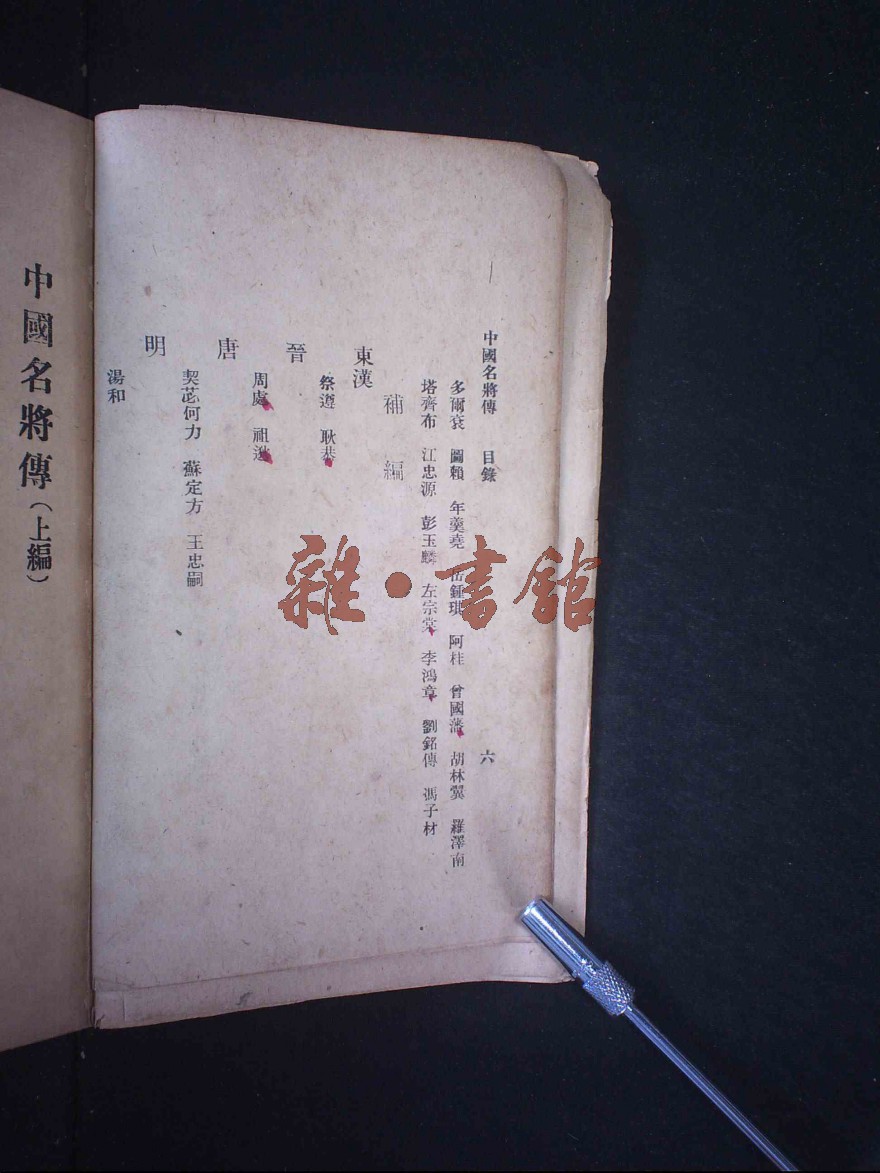 中國名將傳 目錄 六
多爾袞 圖賴 年羹堯 岳鍾琪 阿桂 曾國藩 胡林翼 羅澤南
塔齊布 江忠源 彭玉麟 左宗棠 李鴻章 劉銘傳 馮子材
補編
東漢
祭遵 耿恭
晉
周處 祖逖
唐
契苾何力 蘇定方 王忠嗣
明
湯和
中國名將傳(上編)
雜·書館